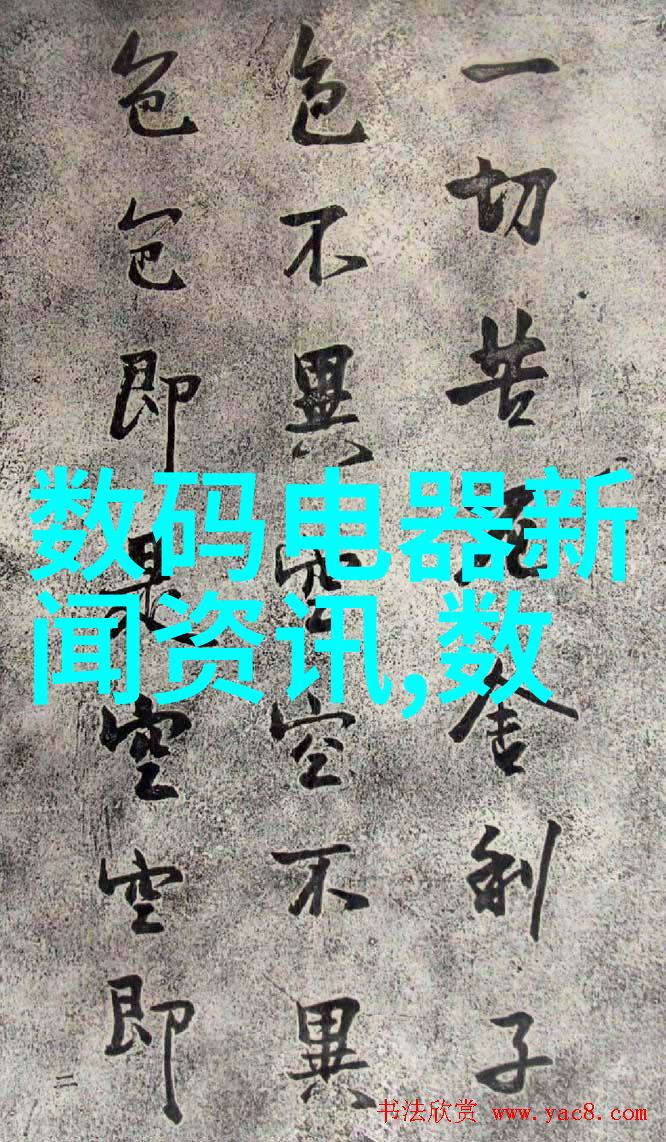 一切苦厄舍利子
色不異空空不異
色色即是空空即
二
数码电器新
闻资讯,数
书法欣赏 www.yac8.com